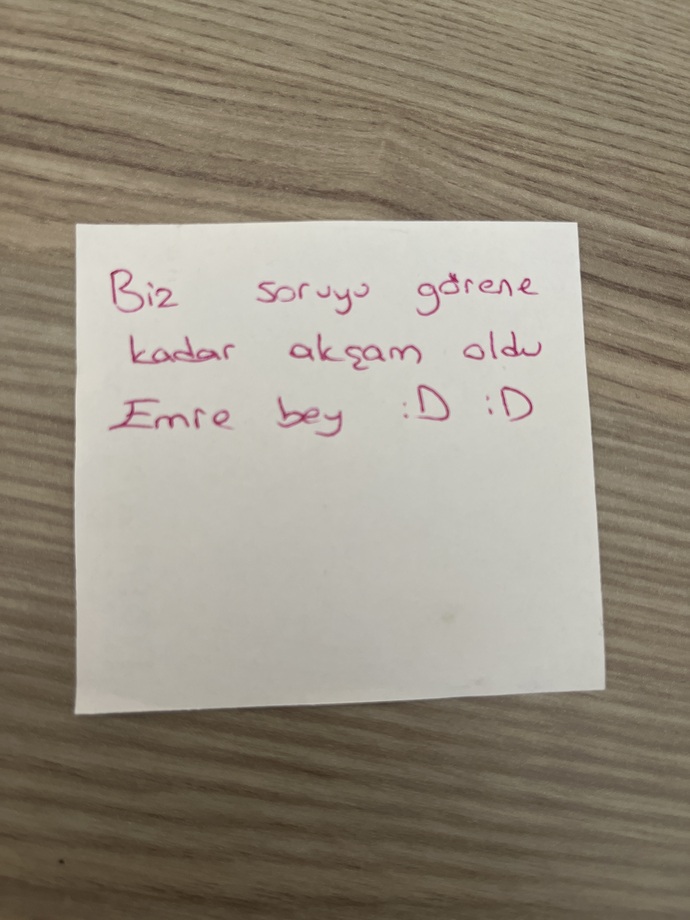 Biz soruyu görene
kadar akşam oldu
Emre bey :D :D